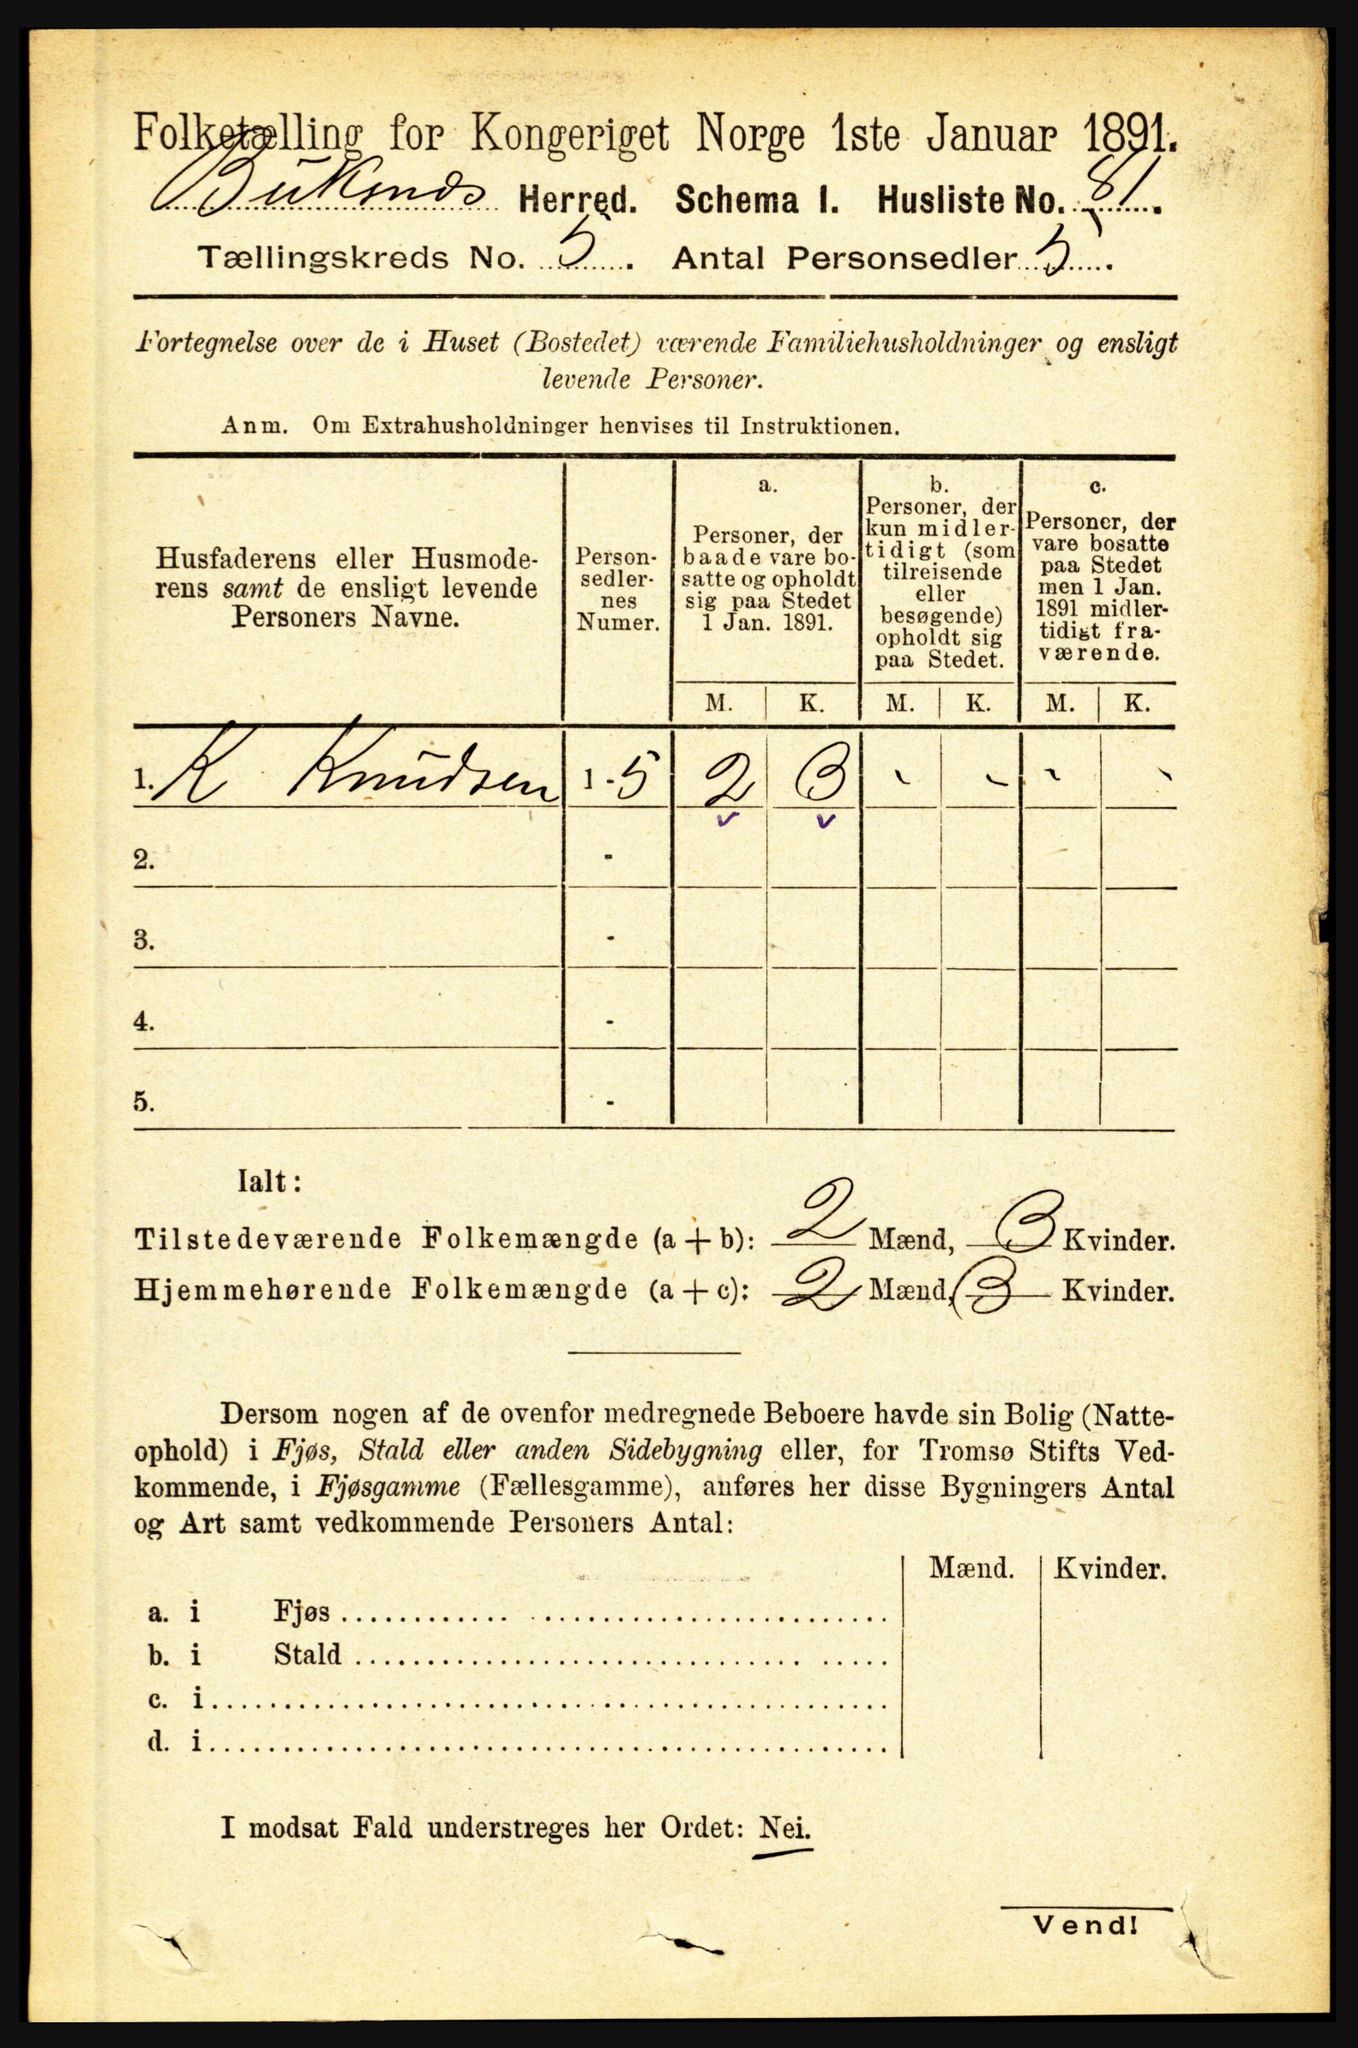 Folketælling for Kongeriget Norge 1ste Januar 1891.
Buksnæs Herred. Schema I. Husliste No. 81.
Tællingskreds No. 5. Antal Personsedler 5.
Fortegnelse over de i Huset (Bostedet) værende Familiehusholdninger og ensligt
levende Personer.
Anm. Om Extrahusholdninger henvises til Instruktionen.
Husfaderens eller Husmode-
rens samt de ensligt levende
Personers Navne.
Person-
sedler-
nes
Numer.
a.
Personer, der
baade vare bo-
satte og opholdt
sig paa Stedet
1 Jan. 1891.
b.
Personer, der
kun midler-
tidigt (som
tilreisende
eller
besøgende)
opholdt sig
paa Stedet.
c.
Personer, der
vare bosatte
paa Stedet
men 1 Jan.
1891 midler-
tidigt fra-
værende.
M. K. M. K. M. K.
1. K Knudsen 1 - 5 2 3 - - - -
2. -
3. -
4. -
5. -
Ialt:
Tilstedeværende Folkemængde (a + b): 2 Mænd, 3 Kvinder.
Hjemmehørende Folkemængde (a + c): 2 Mænd, (3 Kvinder.
Dersom nogen af de ovenfor medregnede Beboere havde sin Bolig (Natte-
ophold) i Fjøs, Stald eller anden Sidebygning eller, for Tromsø Stifts Ved-
kommende, i Fjøsgamme (Fællesgamme), anføres her disse Bygningers Antal
og Art samt vedkommende Personers Antal:
Mænd. Kvinder.
a. i Fjøs
b. i Stald
c. i
d. i
I modsat Fald understreges her Ordet: Nei.
Vend!